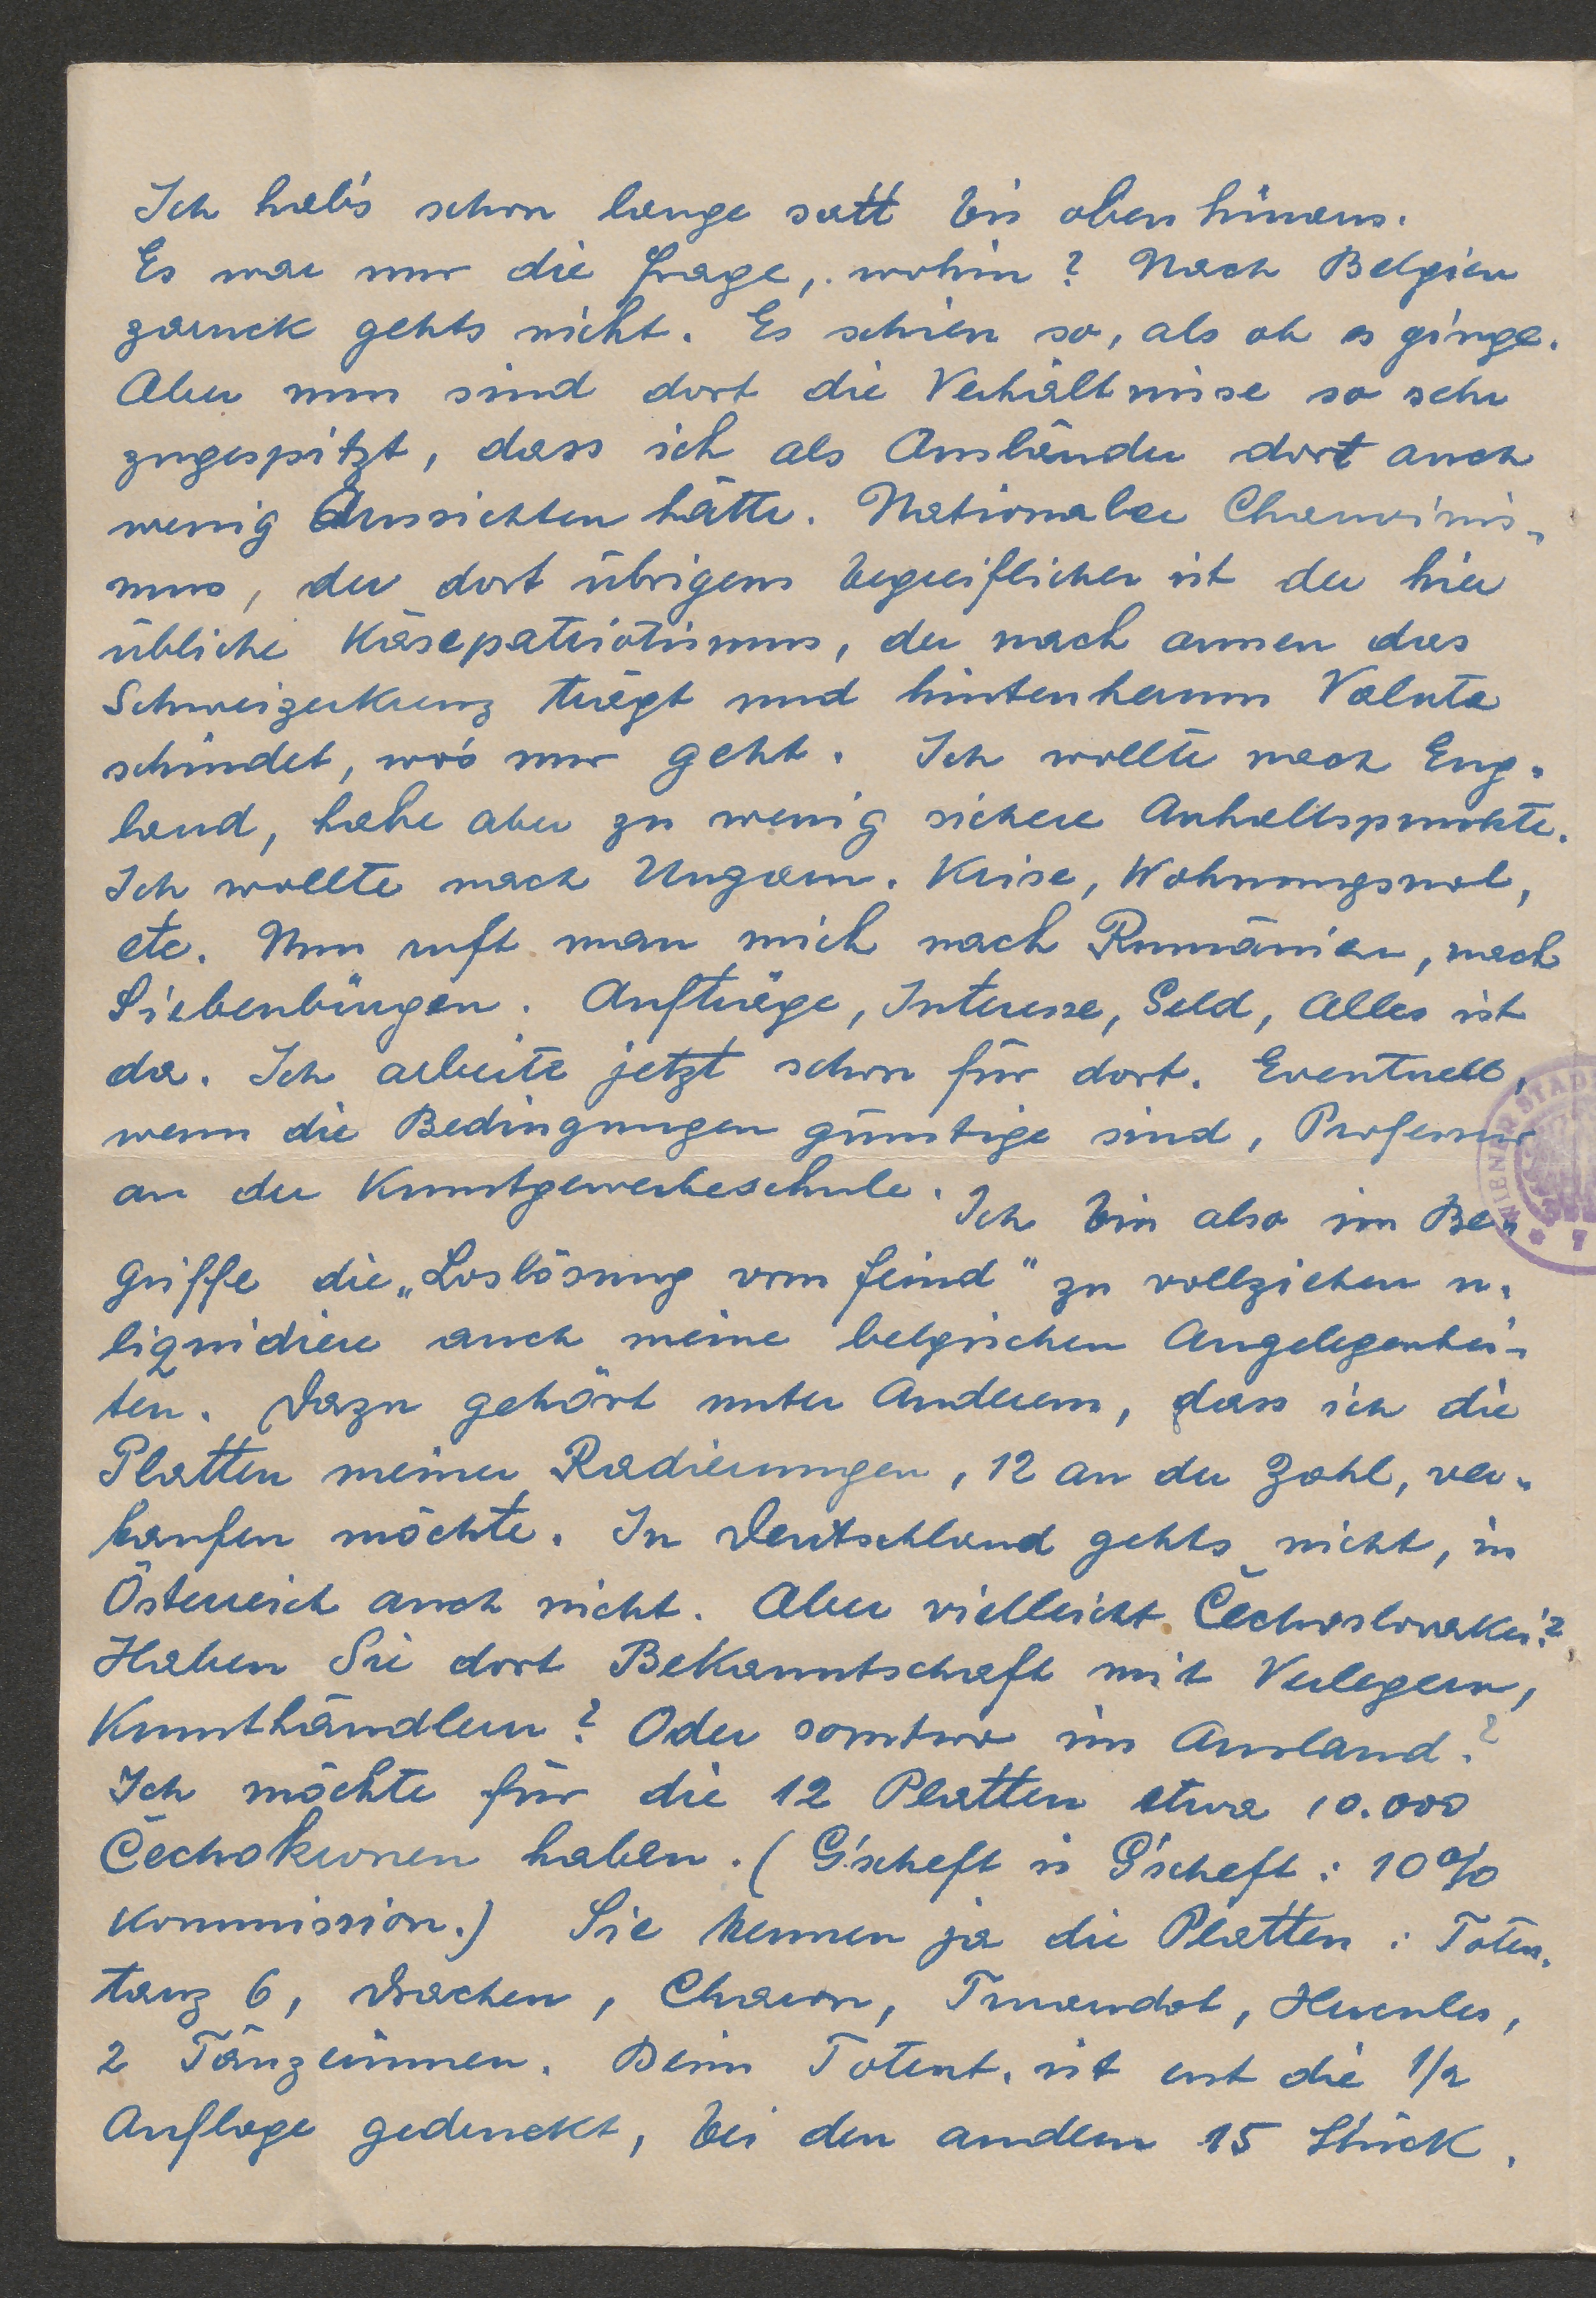 Ich hab's schon lange satt bis oben hinaus.
Es war nur die Frage, wohin? Nach Belgien
zurück gehts nicht. Es schien so, als ob es ginge.
Aber nun sind dort die Verhältnisse so sehr
zugespitzt, dass ich als Ausländer dort auch
wenig Aussichten hätte. Nationaler Chauvinis-
mus, der dort übrigens begreiflicher ist der hier
übliche Käsepatriotismus, der nach aussen das
Schweizerkreuz trägt und hintenherum Valuta
schindet, wo's nur geht. Ich wollte nach Eng-
land, habe aber zu wenig sichere Anhaltspunkte.
Ich wollte nach Ungarn. Krise, Wohnungsnot,
etc. Nun ruft man mich nach Rumänien, nach
Siebenbürgen. Aufträge, Interesse, Geld, Alles ist
da. Ich arbeite jetzt schon für dort. Eventuell,
wenn die Bedingungen günstige sind, Professur
an der Kunstgewerbeschule. Ich bin also im Be-
griffe die „Loslösung vom Feind" zu vollziehen u.
liquidiere auch meine belgischen Angelegenhei-
ten. Dazu gehört unter Anderem, dass ich die
Platten meiner Radierungen, 12 an der Zahl, ver-
kaufen möchte. In Deutschland gehts nicht, in
Österreich auch nicht. Aber vielleicht Čechoslovakei?
Haben Sie dort Bekanntschaft mit Verlegern,
Kunsthändlern? Oder sonstwo im Ausland?
Ich möchte für die 12 Platten etwa 10.000
Čechokronen haben. (G'scheft is G'scheft: 10%
Kommission.) Sie kennen ja die Platten: Toten-
tanz 6, Drachen, Charon, Turandot, Hercules,
2 Tänzerinnen. Beim Totent. ist erst die 1/2
Auflage gedruckt, bei den andern 15 Stück.
WIENER STAD